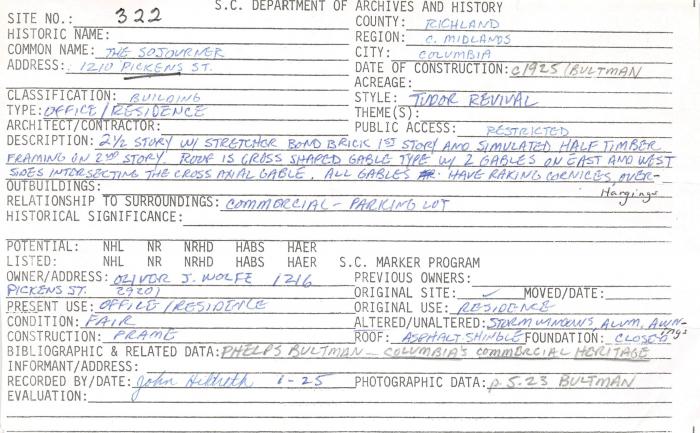 S.C. DEPARTMENT OF ARCHIVES AND HISTORY
SITE NO.: 322
COUNTY: RICHLAND
HISTORIC NAME:
REGION: C. MIDLANDS
COMMON NAME: THE SOJOURNER
CITY: COLUMBIA
ADDRESS: 1210 PICKENS ST.
DATE OF CONSTRUCTION: c1925/BULTMAN
ACREAGE:
CLASSIFICATION: BUILDING
STYLE: TUDOR REVIVAL
TYPE: OFFICE/RESIDENCE
THEME(S):
ARCHITECT/CONTRACTOR:
PUBLIC ACCESS: RESTRICTED
DESCRIPTION: 2½ STORY W/ STRETCHER BOND BRICK 1ST STORY AND SIMULATED HALF TIMBER
FRAMING ON 2ND STORY. ROOF IS CROSS SHAPED GABLE TYPE W/ 2 GABLES ON EAST AND WEST
SIDES INTERSECTING THE CROSS AXIAL GABLE. ALL GABLES HAVE RAKING CORNICES, OVER-
Hangings
OUTBUILDINGS:
RELATIONSHIP TO SURROUNDINGS: COMMERCIAL - PARKING LOT
HISTORICAL SIGNIFICANCE:
POTENTIAL: NHL NR NRHD HABS HAER
LISTED: NHL NR NRHD HABS HAER S.C. MARKER PROGRAM
OWNER/ADDRESS: OLIVER J. WOLFE 1216
PICKENS ST. 29201
PREVIOUS OWNERS:
ORIGINAL SITE: ✓ MOVED/DATE:
PRESENT USE: OFFICE/RESIDENCE
ORIGINAL USE: RESIDENCE
CONDITION: FAIR
ALTERED/UNALTERED: STORM WINDOWS, ALUM. AWN-
ings
CONSTRUCTION: FRAME
ROOF: ASPHALT SHINGLE FOUNDATION: CLOSED
BIBLIOGRAPHIC & RELATED DATA: PHELPS BULTMAN - COLUMBIA'S COMMERCIAL HERITAGE
INFORMANT/ADDRESS:
RECORDED BY/DATE: John Hildreth 1-25
PHOTOGRAPHIC DATA: p.5.23 BULTMAN
EVALUATION: